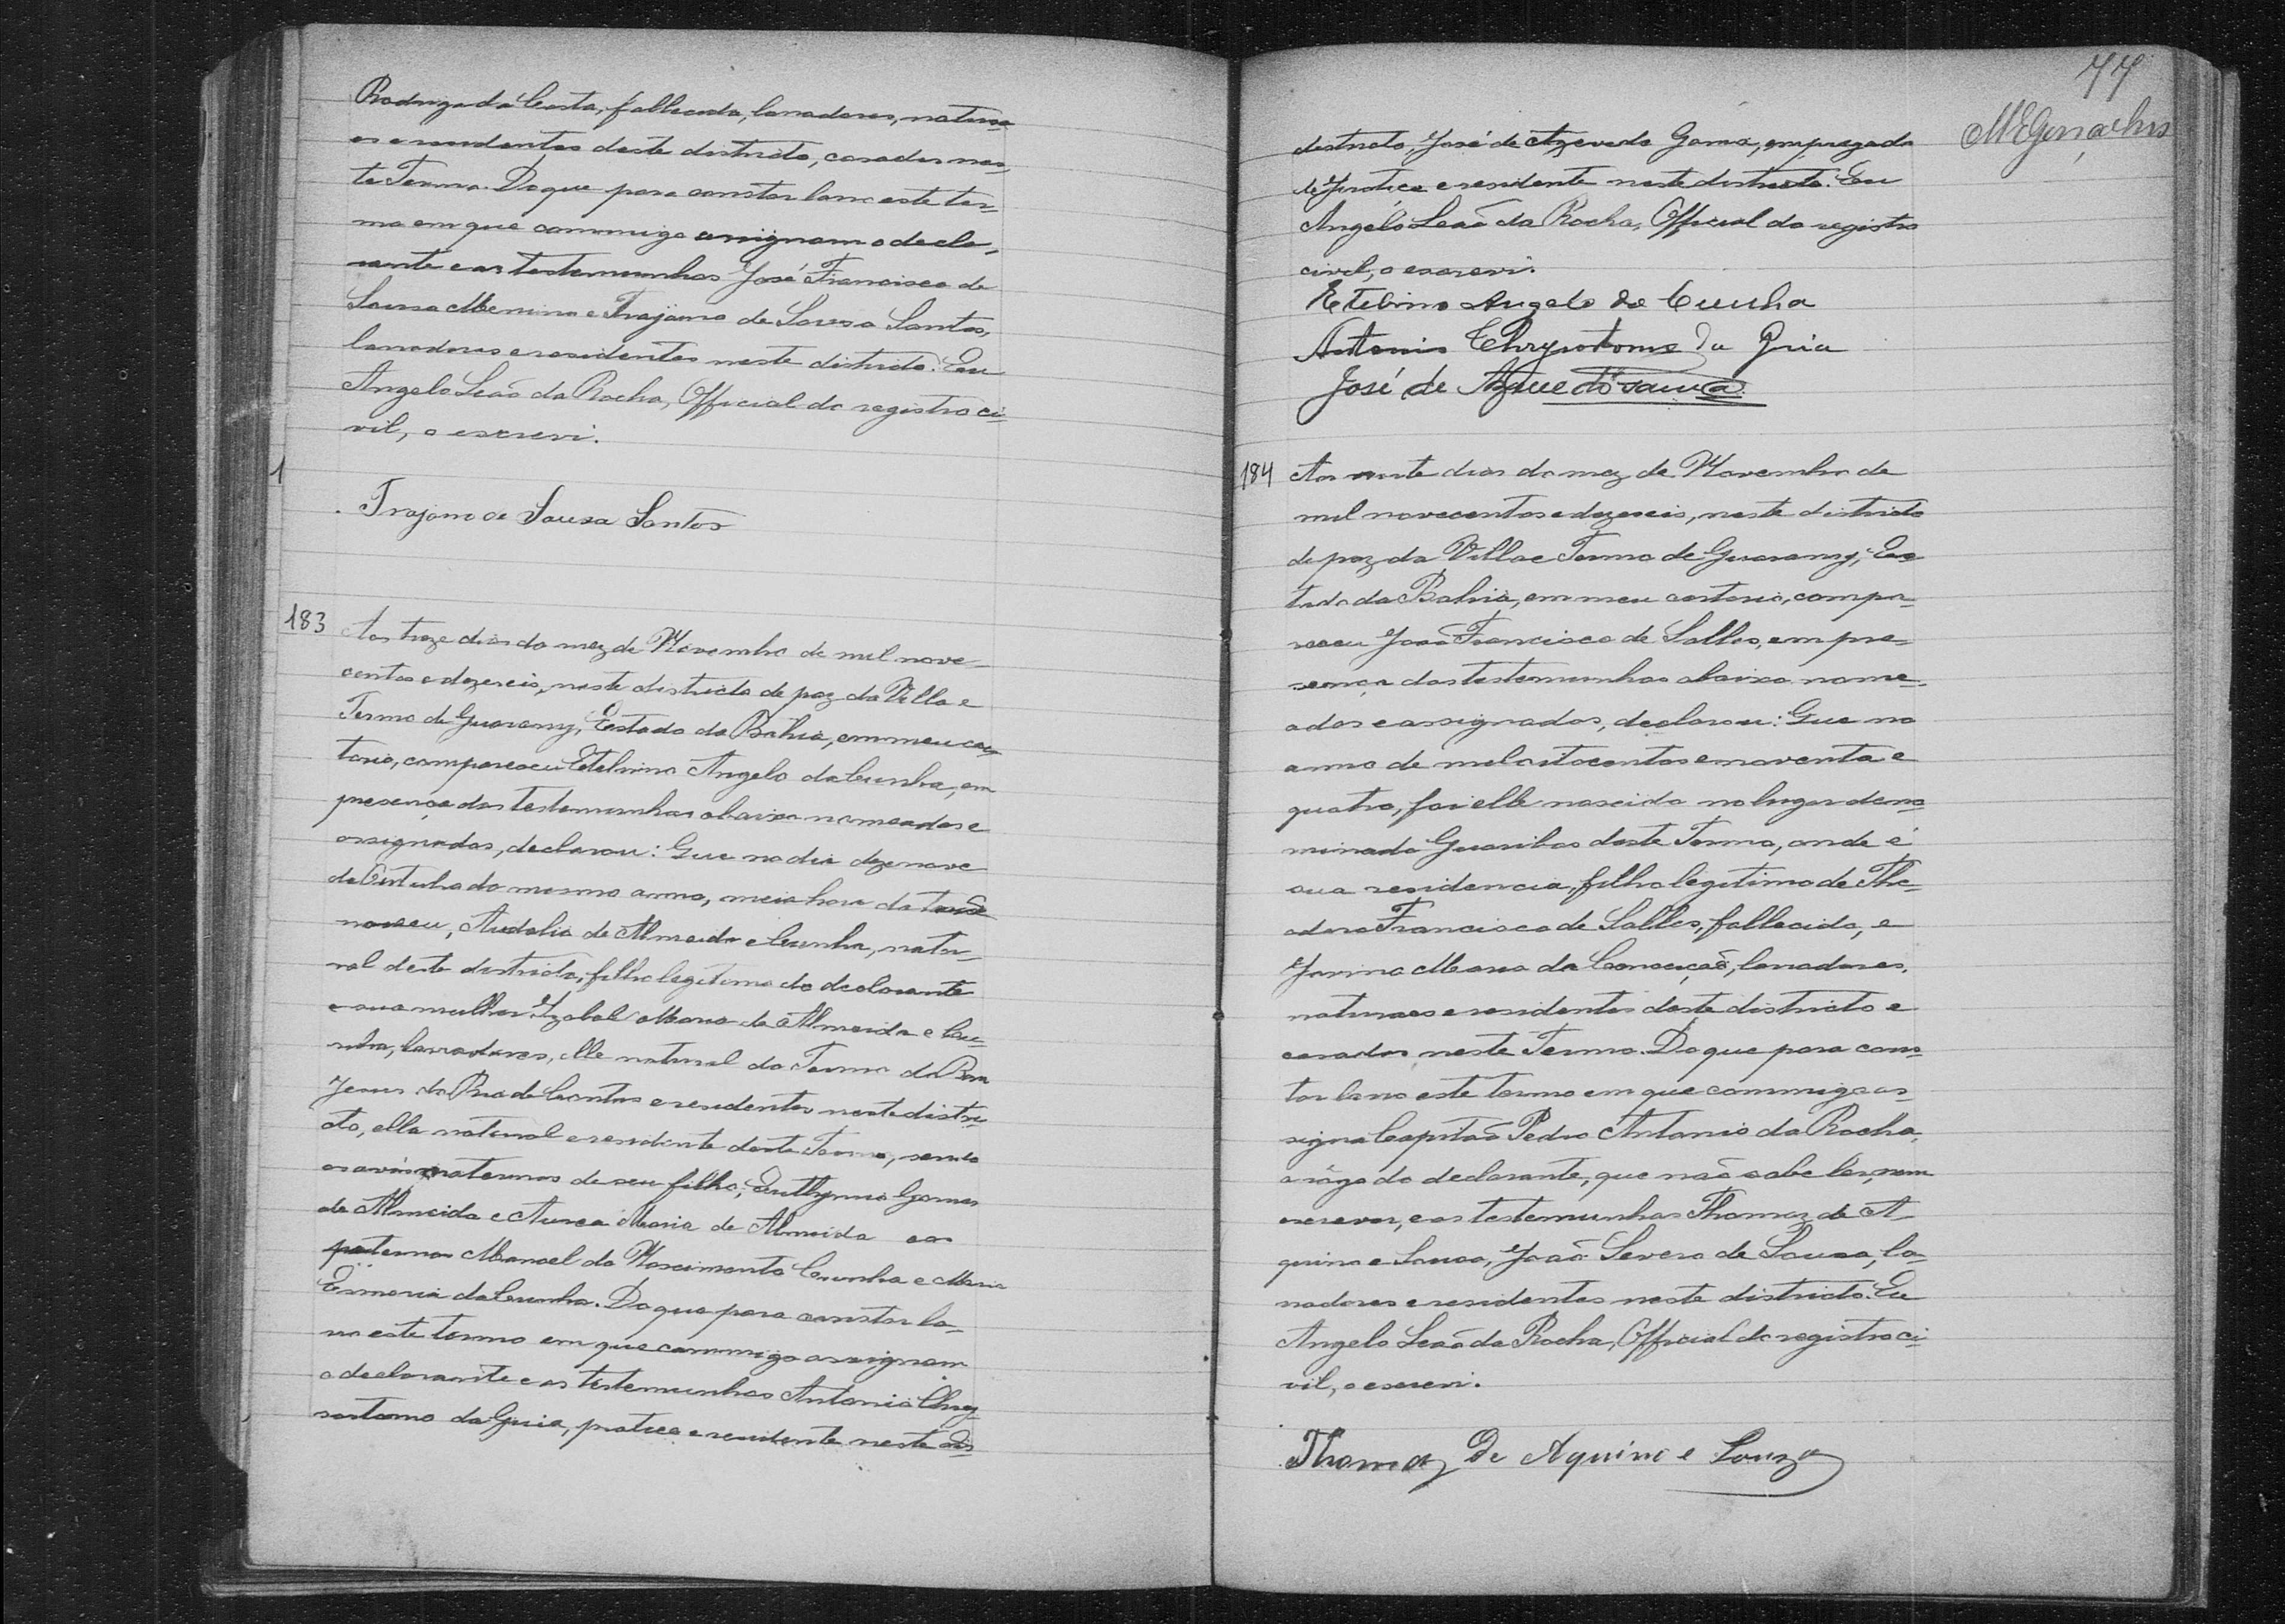 Rodriga da Costa, fallecida, lavradores, naturа-
es e residentes deste districto, casados nes-
te Termo. Do que para constar lavro este ter-
mo em que commigo assignam o decla-
rante e as testemunhas José Francisco de
Sousa Menino e Trajano de Sousa Santos,
lavradores e residentes neste districto. Eu
Angelo Leão da Rocha, Official do registro ci-
vil, o escrevi.
Trajano de Sousa Santos
183 Aos treze dias do mez de Novembro de mil nove-
centos e dezeseis, neste districto de paz da Villa e
Termo de Guarany, Estado da Bahia, em meu car-
torio, compareceu Etelvino Angelo da Cunha, em
presença das testemunhas abaixo nomeadas e
assignadas, declarou: Que no dia dezenove
de Outubro do mesmo anno, meia hora da tarde
nasceu, Audalio de Almeida e Cunha, natu-
ral deste districto, filho legitimo do declarante
e sua mulher Izabel Maria de Almeida e Cu-
nha, lavradores, elle natural do Termo do Bom
Jesus do Rio de Contas e residentes neste distri-
cto, ella natural e residente deste Termo, sendo
os avós maternos de seu filho, Euthymio Gomes
de Almeida e Aurea Maria de Almeida e os
paternos Manoel do Nascimento Cunha e Maria
Esmeria da Cunha. Do que para constar la-
vro este termo em que commigo assignam
o declarante e as testemunhas Antonio Chry-
sostomo da Guia, pratico e residente neste dis-
77
MEGonçalves
districto, José de Azevedo Gama, empregado
de Justiça e residente neste districto. Eu
Angelo Leão da Rocha, Official do registro
civil, o escrevi.
Etelvino Angelo da Cunha
Antonio Chrysotomo da Guia
José de Azevedo Gama
184 Aos vinte dias do mez de Novembro de
mil novecentos e dezeseis, neste districto
de paz da Villa e Termo de Guarany, Es-
tado da Bahia, em meu cartorio, compa-
receu João Francisco de Salles, em pre-
sença das testemunhas abaixo nome-
adas e assignadas, declarou: Que no
anno de mil oitocentos e noventa e
quatro, foi elle nascido no lugar deno-
minado Guaribas deste Termo, onde é
sua residencia, filho legitimo de The-
odoro Francisco de Salles, fallecido, e
Jovina Maria da Conceição, lavradores,
naturaes e residentes deste districto e
casados neste Termo. Do que para cons-
tar lavro este termo em que commigo as-
signa Capitão Pedro Antonio da Rocha,
a rôgo do declarante, que não sabe ler, nem
escrever, e as testemunhas Thomaz de A-
quino e Sousa, João Severo de Sousa, la-
vradores e residentes neste districto. Eu
Angelo Leão da Rocha, Official do registro ci-
vil, o escrevi.
Thomaz de Aquino e Souza